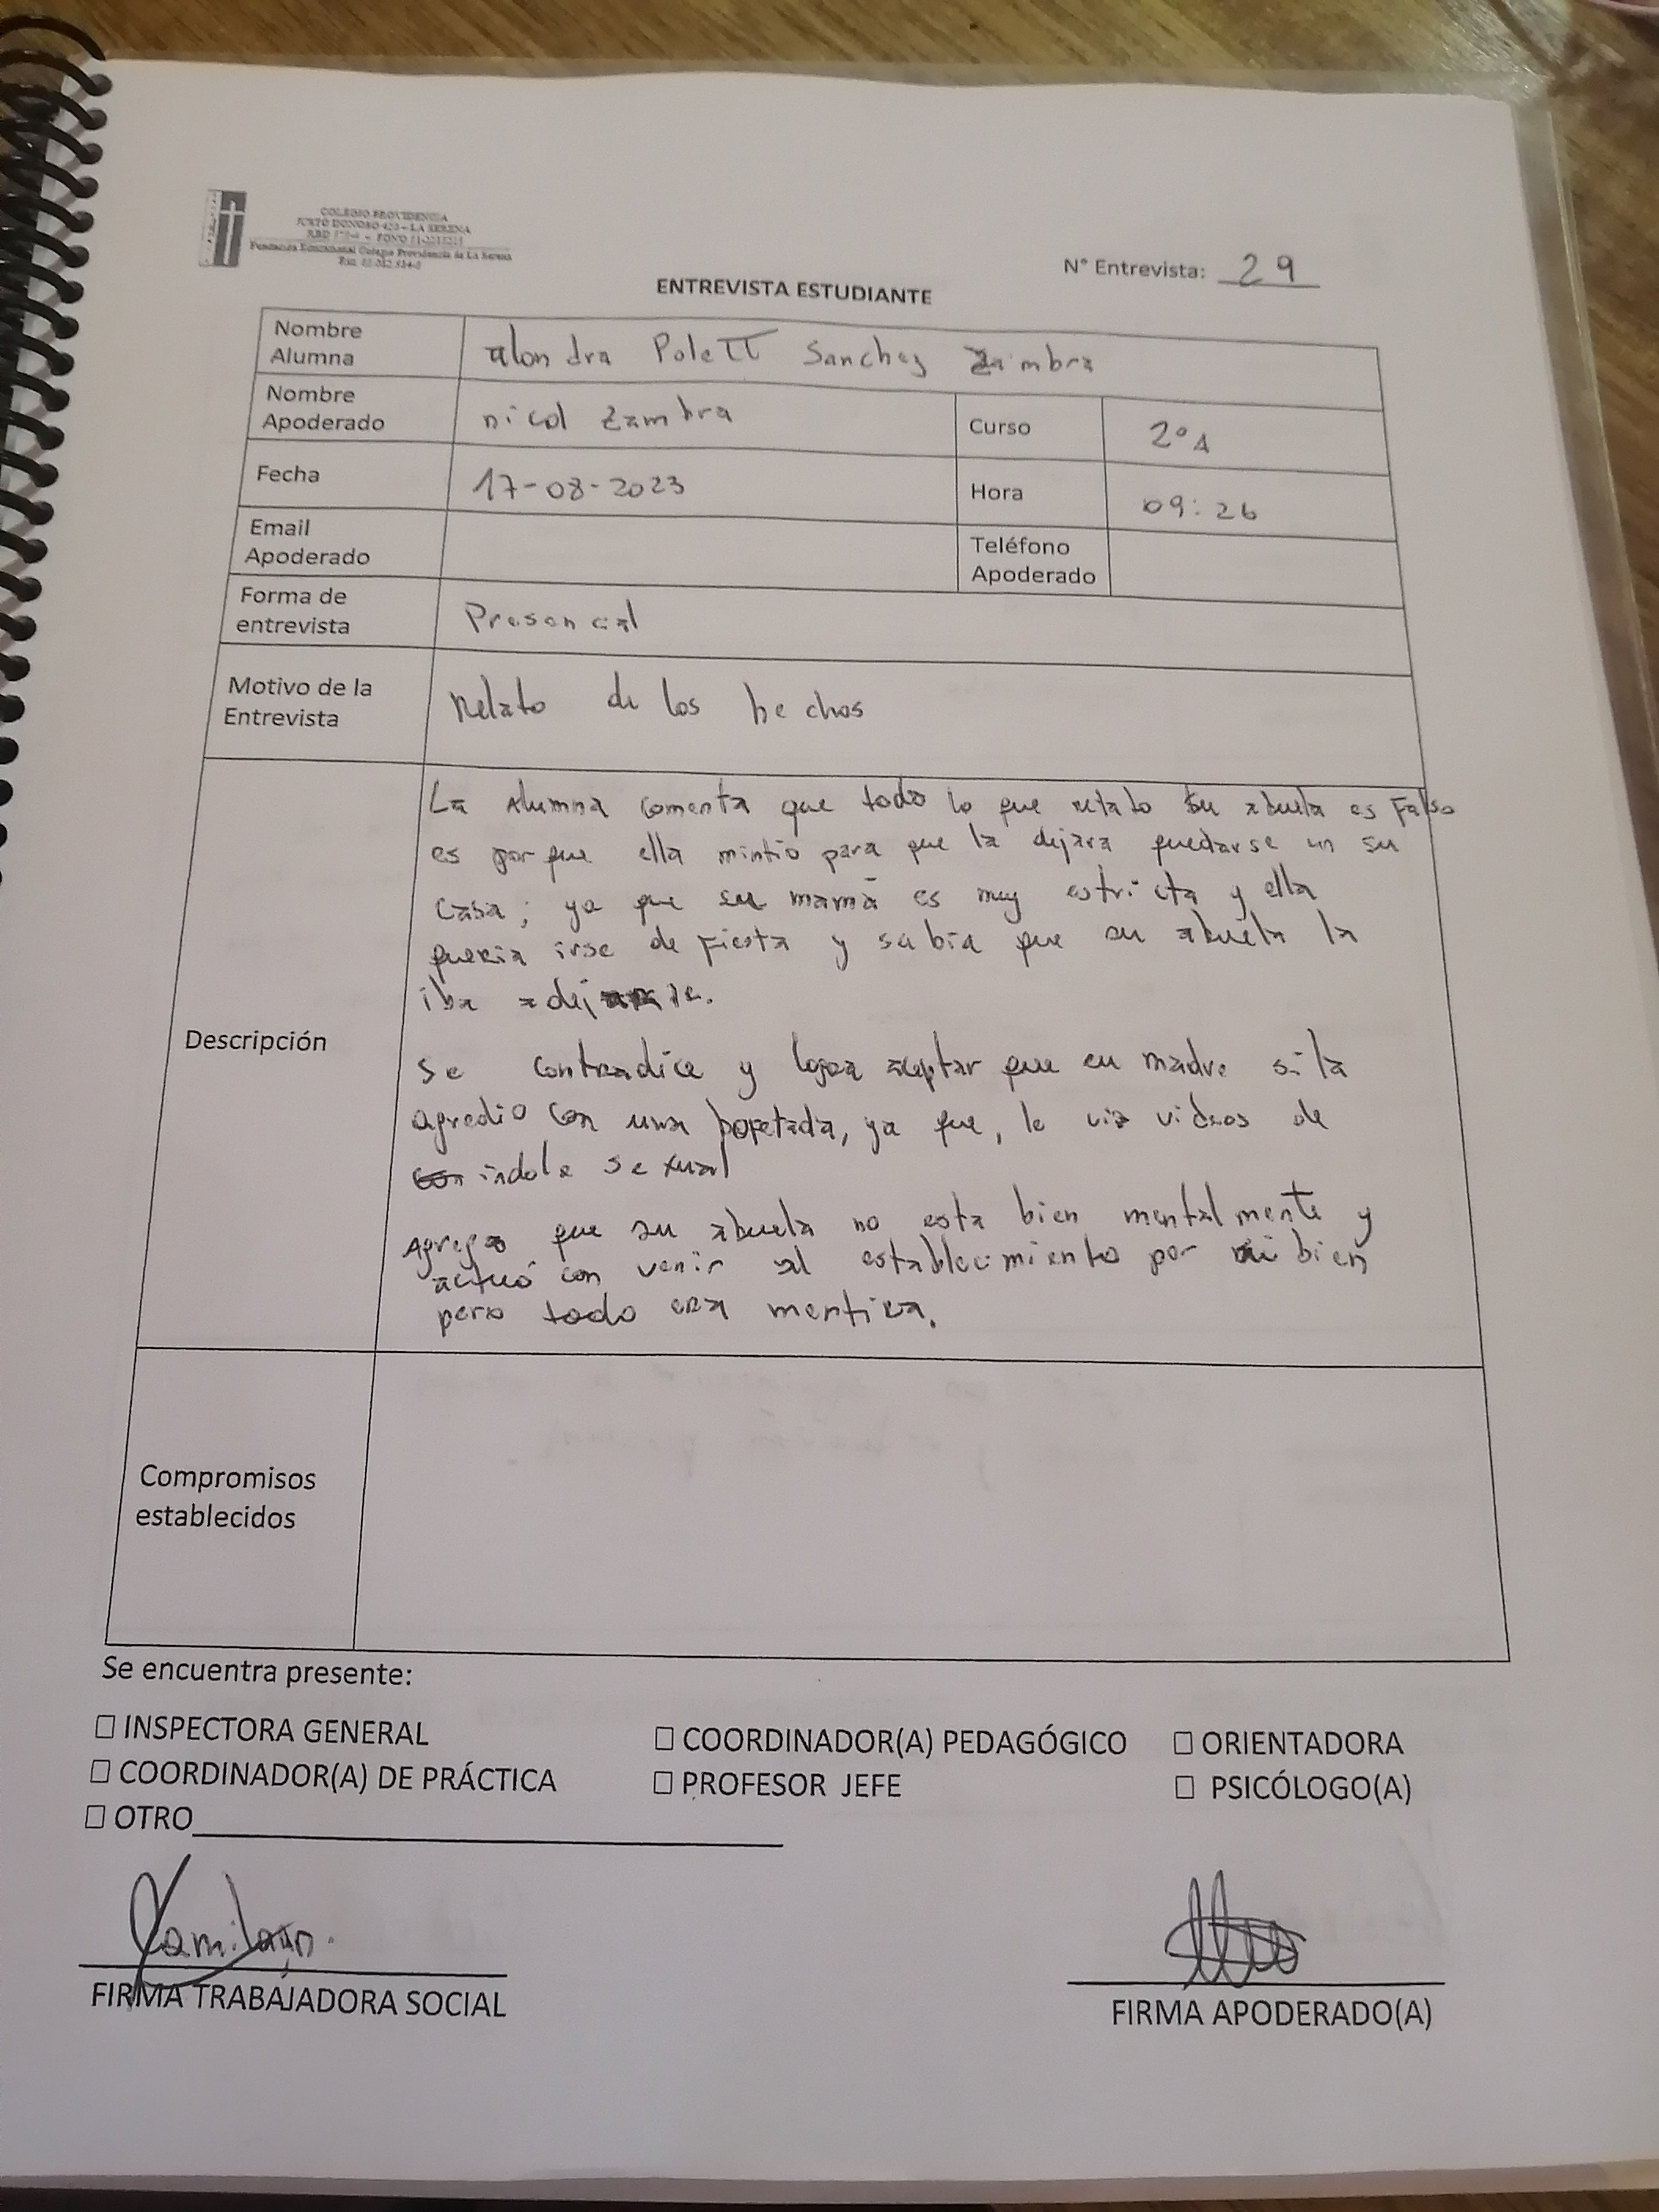 COLEGIO PROVIDENCIA
JUSTO DONOSO 420 – LA SERENA
Fundación Educacional Colegio Providencia de La Serena
N° Entrevista: 29
ENTREVISTA ESTUDIANTE
Nombre Alumna
alondra Polett Sanchez Zambra
Nombre Apoderado
nicol Zambra
Curso
2°A
Fecha
17-08-2023
Hora
09:26
Email Apoderado
Teléfono Apoderado
Forma de entrevista
Presencial
Motivo de la Entrevista
Relato de los hechos
Descripción
La Alumna comenta que todo lo que relato su abuela es Falso
es porque ella mintio para que la dejara quedarse en su
casa; ya que su mamá es muy estricta y ella
queria irse de Fiesta y sabia que su abuela la
iba a
se contradice y logra aceptar que su madre si la
agredio con una bofetada, ya que, le vio videos de
indole sexual
Agrega que su abuela no esta bien mentalmente y
actuó con venir al establecimiento por mi bien
pero todo era mentira.
Compromisos establecidos
Se encuentra presente:
☐ INSPECTORA GENERAL ☐ COORDINADOR(A) PEDAGÓGICO ☐ ORIENTADORA
☐ COORDINADOR(A) DE PRÁCTICA ☐ PROFESOR JEFE ☐ PSICÓLOGO(A)
☐ OTRO
FIRMA TRABAJADORA SOCIAL
FIRMA APODERADO(A)